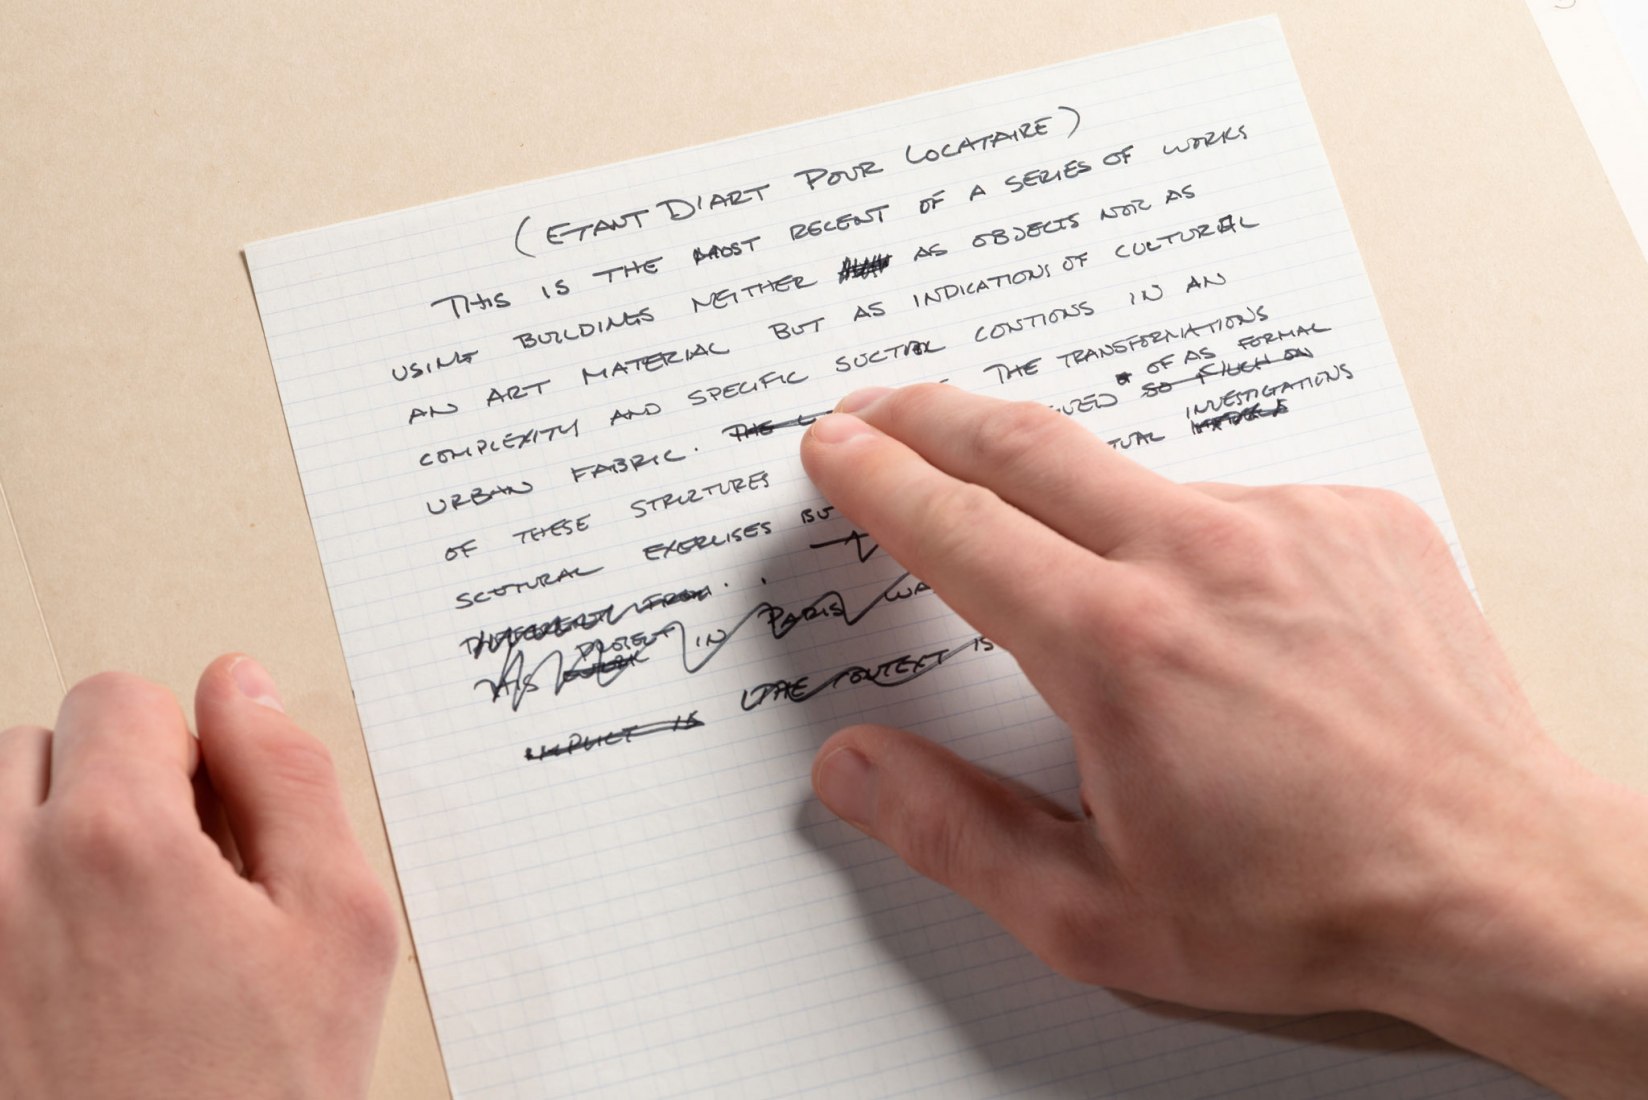 (ETANT D'ART POUR LOCATAIRE)
THIS IS THE MOST RECENT OF A SERIES OF WORKS
USING BUILDINGS NEITHER AS OBJECTS NOR AS
AN ART MATERIAL BUT AS INDICATIONS OF CULTURAL
COMPLEXITY AND SPECIFIC SUCTRAL CONTIONS IN AN
URBAN FABRIC. THE THE TRANSFORMATIONS
OF THESE STRUCTURES OF AS FORMAL
SO MUCH ON
SCUTURAL EXERCISES INVESTIGATIONS
DIFFERENT FROM
PROJECT
THIS IN PARIS
IMPLICT IS THE CONTEXT IS